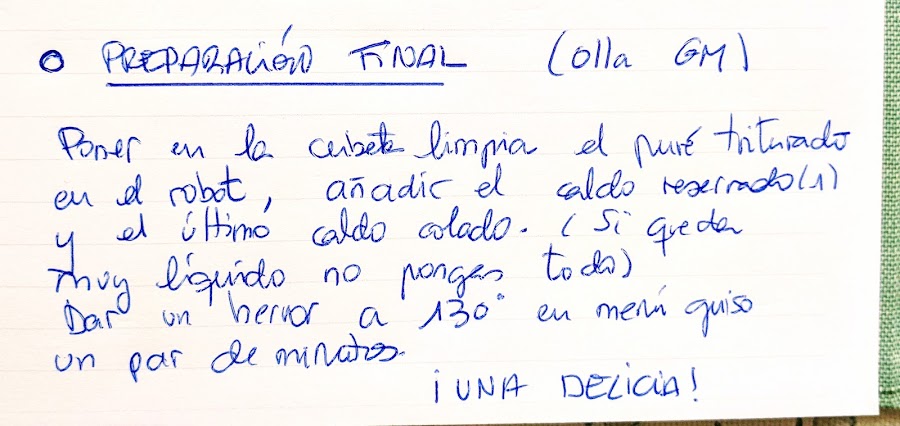 o PREPARACIÓN FINAL (Olla GM)
Poner en la cubeta limpia el puré triturado
en el robot, añadir el caldo reservado (1)
y el último caldo colado. (Si queda
muy líquido no pongas todo)
Dar un hervor a 130° en menú guiso
un par de minutos.
¡UNA DELICIA!